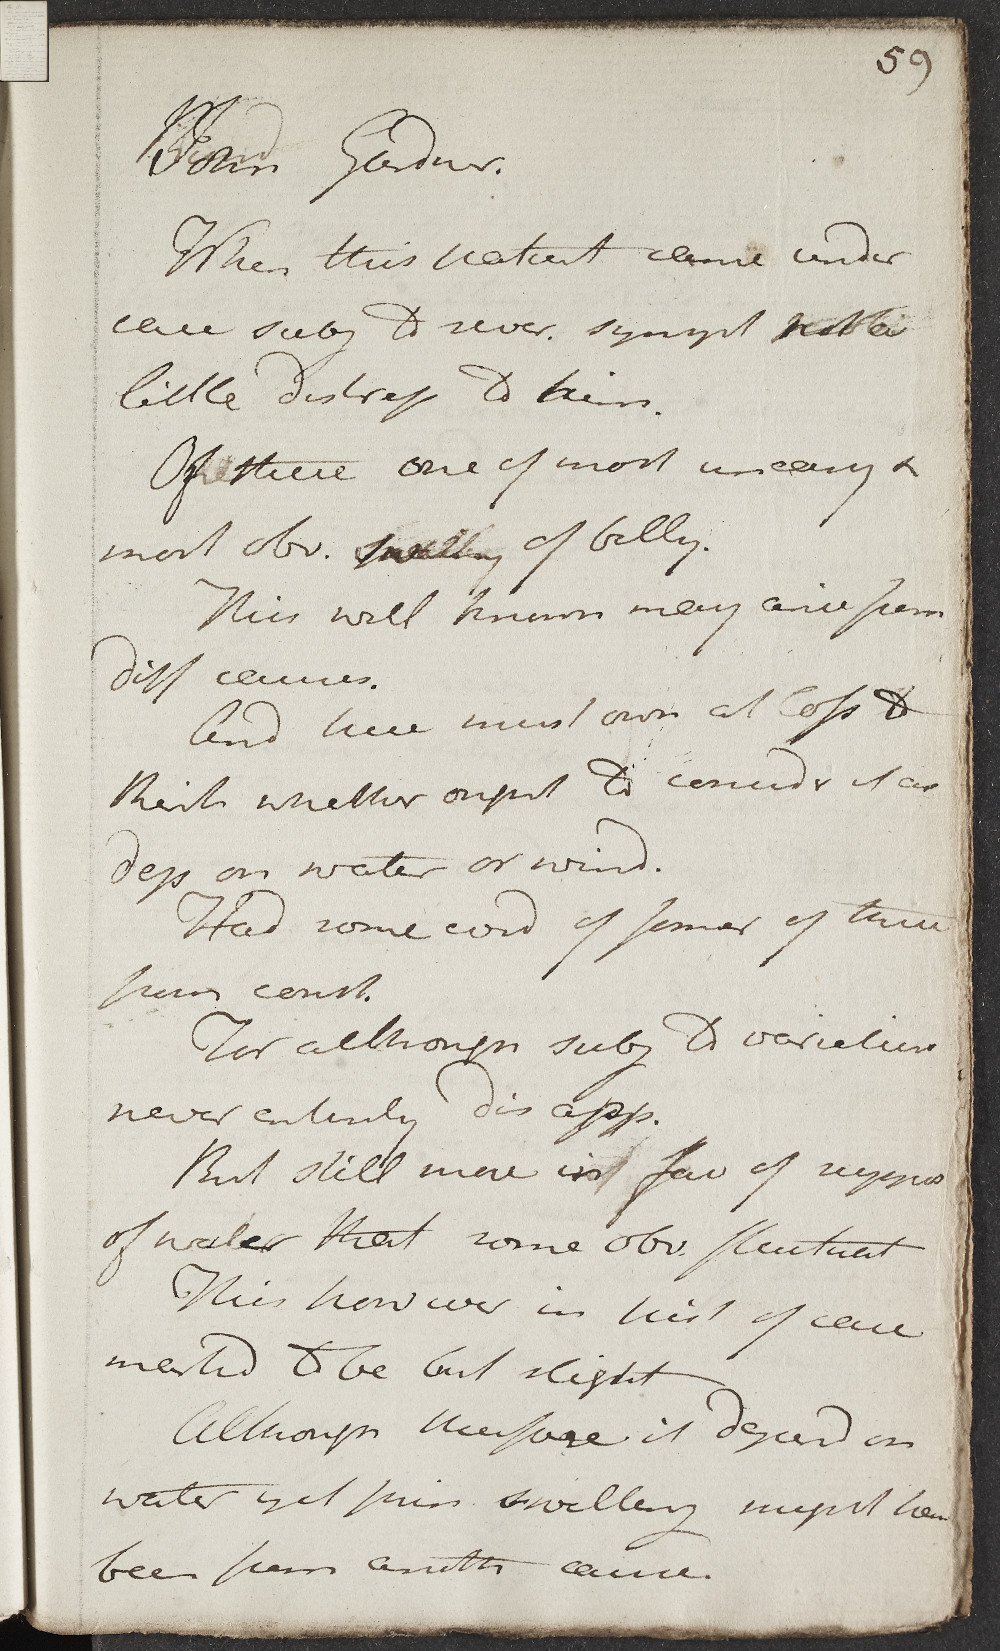 59
John Gardner.
When this patient came under
care subj to sever. sympt not a
little distress to him.
Of these one of most uneasy &
most obv. swelling of belly.
This well known may arise from
diff causes.
And here must own at loss to
think whether ought to consider it as
dep on water or wind.
Had some conv of former of these
from const.
For although subj to varieties
never entirely disapp.
But still more in fav of suppos
of water that some obv. fluctuat
This however in hist of case
marked to be but slight
Although therefore it depend on
water yet prin swelling might have
been from anoth cause.